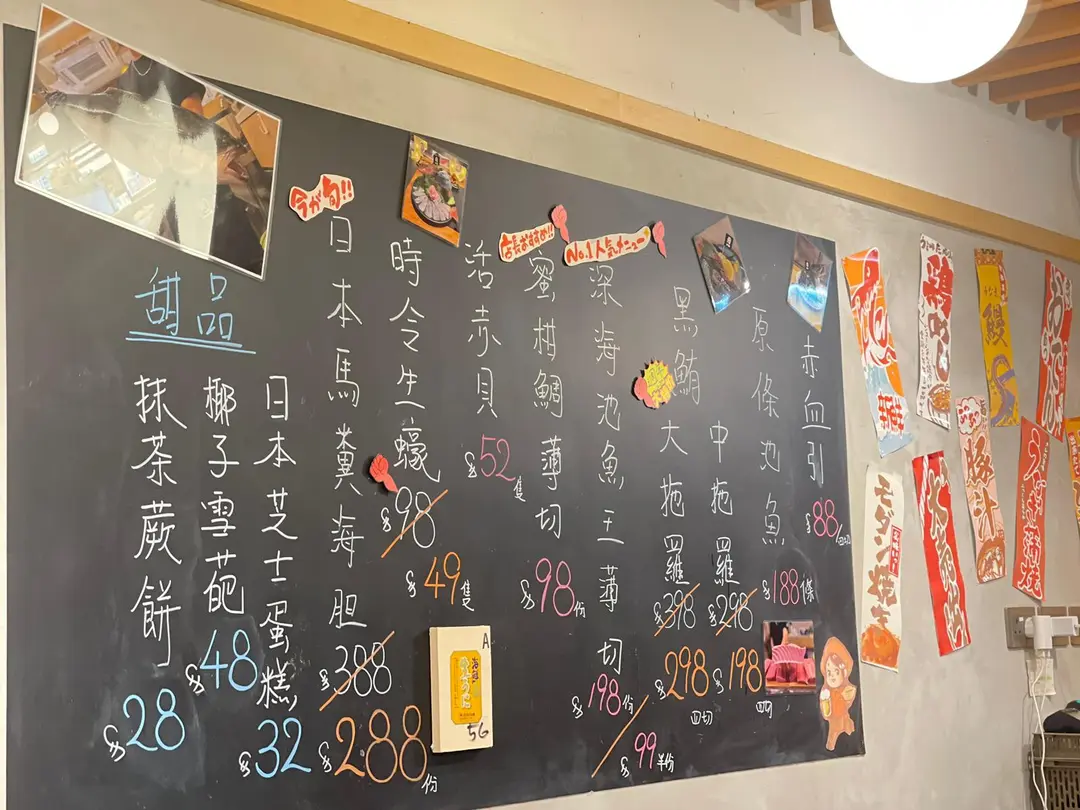 赤血引
$88
原條池魚
$188條
黑鮪
中拖羅
$298
$198
四切
大拖羅
$398
$298
四切
No.1人気メニュー
深海池魚王薄切
$198份
$99半份
店長おすすめ!!
蜜柑鯛薄切
$98份
活赤貝
$52隻
時令生蠔
$98
$49隻
今が旬!!
日本馬糞海胆
$388
$288份
甜品
日本芝士蛋糕
$32
椰子雪葩
$48
抹茶蕨餅
$28
A
56
鶏めし
うなぎ
鰻
豚汁
モダン焼き